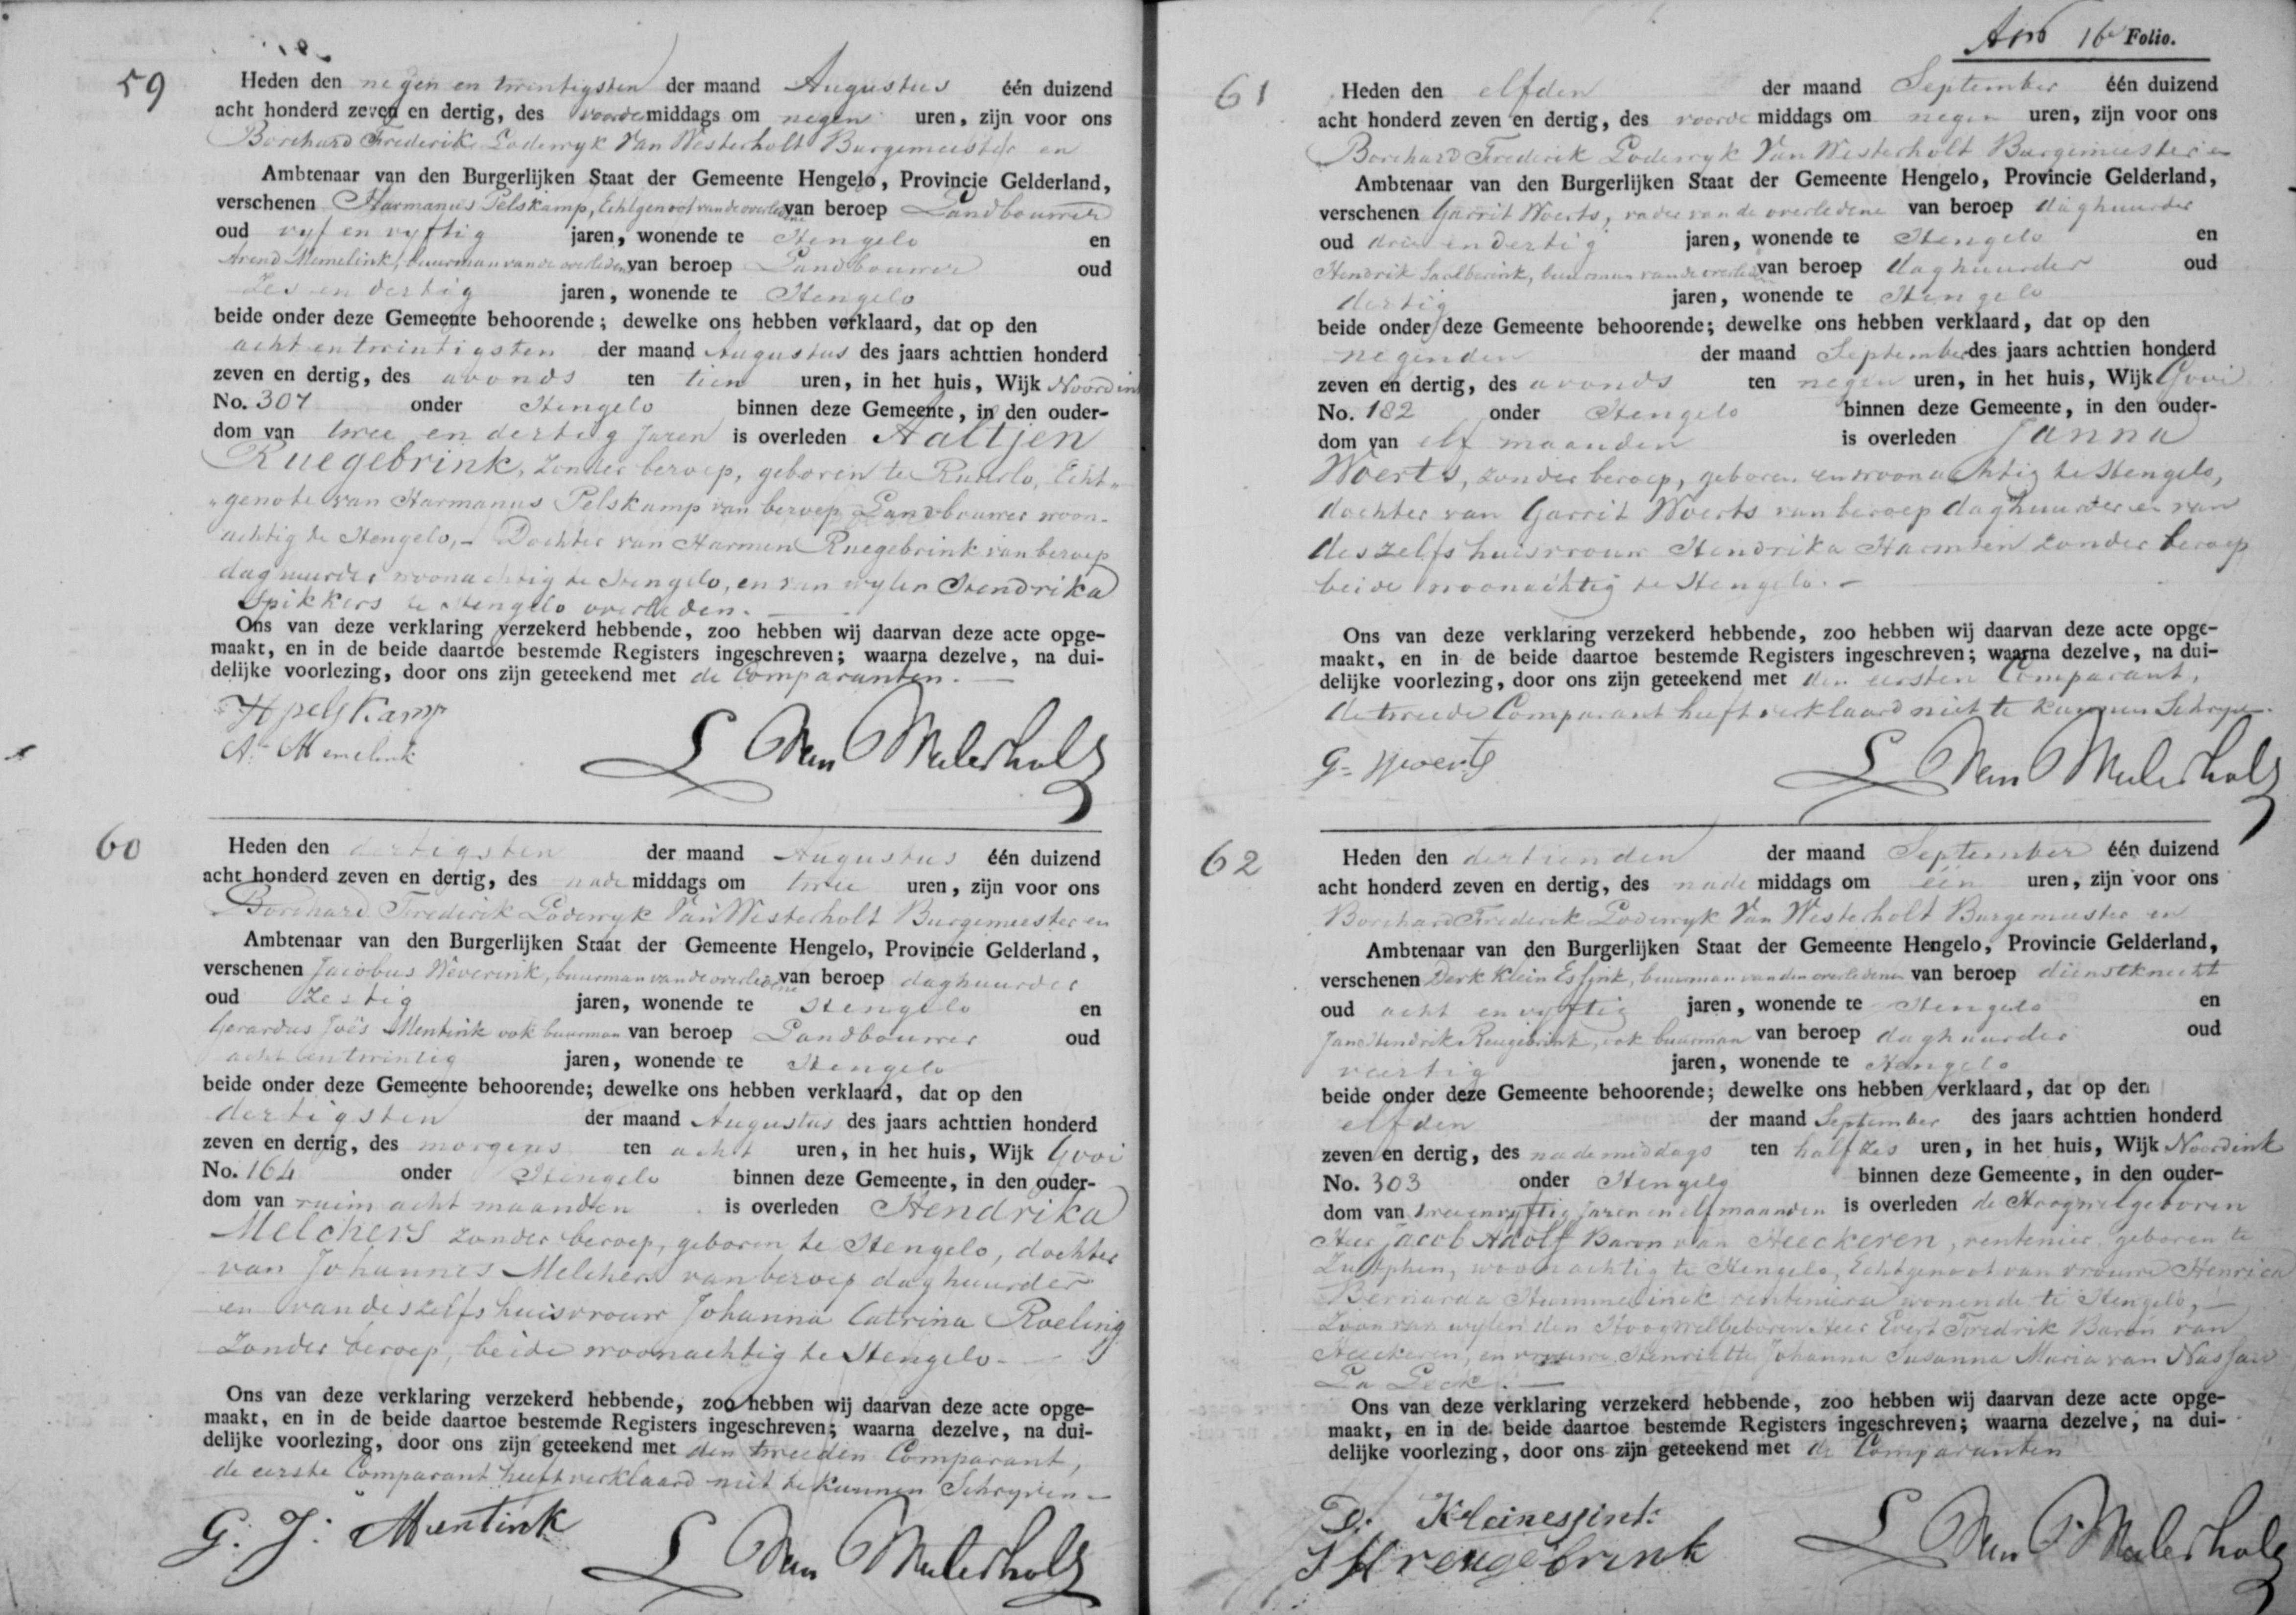 59
Heden den negen en twintigsten der maand Augustus één duizend
acht honderd zeven en dertig, des voorde middags om negen uren, zijn voor ons
Borchard Frederik Lodewyk Van Westerholt Burgemeester en
Ambtenaar van den Burgerlijken Staat der Gemeente Hengelo, Provincie Gelderland,
verschenen Harmanus Pelskamp, Echtgenoot van de overledene van beroep Landbouwer
oud vyf en vyftig jaren, wonende te Hengelo en
Arend Memelink, buurman van de overledene van beroep Landbouwer oud
Zes en dertig jaren, wonende te Hengelo
beide onder deze Gemeente behoorende; dewelke ons hebben verklaard, dat op den
acht en twintigsten der maand Augustus des jaars achttien honderd
zeven en dertig, des avonds ten tien uren, in het huis, Wijk Noordink
No. 307 onder Hengelo binnen deze Gemeente, in den ouder-
dom van twee en dertig Jaren is overleden Aaltjen
Ruegebrink, zonder beroep, geboren te Ruurlo, Echt-
genote van Harmanus Pelskamp van beroep Landbouwer woon-
achtig te Hengelo, - Dochter van Harmen Ruegebrink van beroep
daghuurder woonachtig te Hengelo, en van wylen Hendrika
Spikkers te Hengelo overleden.
Ons van deze verklaring verzekerd hebbende, zoo hebben wij daarvan deze acte opge-
maakt, en in de beide daartoe bestemde Registers ingeschreven; waarna dezelve, na dui-
delijke voorlezing, door ons zijn geteekend met de Comparanten.
H pelskamp
A. Memelink
L Van Westerholt
60
Heden den dertigsten der maand Augustus één duizend
acht honderd zeven en dertig, des nade middags om twee uren, zijn voor ons
Borchard Frederik Lodewyk Van Westerholt Burgemeester en
Ambtenaar van den Burgerlijken Staat der Gemeente Hengelo, Provincie Gelderland,
verschenen Jacobus Weverink, buurman van de overledene van beroep daghuurder
oud Zestig jaren, wonende te Hengelo en
Gerardus Joës Mentink ook buurman van beroep Landbouwer oud
acht en twintig jaren, wonende te Hengelo
beide onder deze Gemeente behoorende; dewelke ons hebben verklaard, dat op den
dertigsten der maand Augustus des jaars achttien honderd
zeven en dertig, des morgens ten acht uren, in het huis, Wijk Gooi
No. 164 onder Hengelo binnen deze Gemeente, in den ouder-
dom van ruim acht maanden is overleden Hendrika
Melchers zonder beroep, geboren te Hengelo, dochter
van Johannes Melchers van beroep daghuurder
en van deszelfs huisvrouw Johanna Catrina Roeling
Zonder beroep, beide woonachtig te Hengelo.
Ons van deze verklaring verzekerd hebbende, zoo hebben wij daarvan deze acte opge-
maakt, en in de beide daartoe bestemde Registers ingeschreven; waarna dezelve, na dui-
delijke voorlezing, door ons zijn geteekend met den tweeden Comparant,
de eerste Comparant heeft verklaard niet te kunnen Schryven.
G. J. Mentink
L Van Westerholt
16e Folio.
61
Heden den elfden der maand September één duizend
acht honderd zeven en dertig, des voorde middags om negen uren, zijn voor ons
Borchard Frederik Lodewyk Van Westerholt Burgemeester en
Ambtenaar van den Burgerlijken Staat der Gemeente Hengelo, Provincie Gelderland,
verschenen Garrit Woerts, vader van de overledene van beroep daghuurder
oud drie en dertig jaren, wonende te Hengelo en
Hendrik buurman van de overledene van beroep daghuurder oud
dertig jaren, wonende te Hengelo
beide onder deze Gemeente behoorende; dewelke ons hebben verklaard, dat op den
negenden der maand September des jaars achttien honderd
zeven en dertig, des avonds ten negen uren, in het huis, Wijk Gooi
No. 182 onder Hengelo binnen deze Gemeente, in den ouder-
dom van elf maanden is overleden Janna
Woerts, zonder beroep, geboren en woonachtig te Hengelo,
dochter van Garrit Woerts van beroep daghuurder en van
deszelfs huisvrouw Hendrika Harmsen zonder beroep
beide woonachtig te Hengelo.
Ons van deze verklaring verzekerd hebbende, zoo hebben wij daarvan deze acte opge-
maakt, en in de beide daartoe bestemde Registers ingeschreven; waarna dezelve, na dui-
delijke voorlezing, door ons zijn geteekend met den eersten Comparant,
de tweede Comparant heeft verklaard niet te kunnen Schryven.
G. Woerts
L Van Westerholt
62
Heden den dertienden der maand September één duizend
acht honderd zeven en dertig, des nade middags om één uren, zijn voor ons
Borchard Frederik Lodewyk Van Westerholt Burgemeester en
Ambtenaar van den Burgerlijken Staat der Gemeente Hengelo, Provincie Gelderland,
verschenen Derk Klein Essink, buurman van den overledenen van beroep dienstknecht
oud acht en vyftig jaren, wonende te Hengelo en
Jan Hendrik Reugebrink, ook buurman van beroep daghuurder oud
veertig jaren, wonende te Hengelo
beide onder deze Gemeente behoorende; dewelke ons hebben verklaard, dat op den
elfden der maand September des jaars achttien honderd
zeven en dertig, des nademiddags ten half zes uren, in het huis, Wijk Noordink
No. 303 onder Hengelo binnen deze Gemeente, in den ouder-
dom van twee en vyftig Jaren en elf maanden is overleden de Hoogwelgeboren
Heer Jacob Adolf Baron van Heeckeren, rentenier, geboren te
Zutphen, woonachtig te Hengelo, Echtgenoot van vrouwe Henrica
Bernarda Hummelinck rentenierse wonende te Hengelo, -
Zoon van wylen den Hoogwelgeboren Heer Evert Fredrik Baron van
Heeckeren, en vrouwe Henriette Johanna Susanna Maria van Nassau
La Leck.
Ons van deze verklaring verzekerd hebbende, zoo hebben wij daarvan deze acte opge-
maakt, en in de beide daartoe bestemde Registers ingeschreven; waarna dezelve, na dui-
delijke voorlezing, door ons zijn geteekend met de Comparanten
D. Kleinessink
J H reugebrink
L Van Westerholt